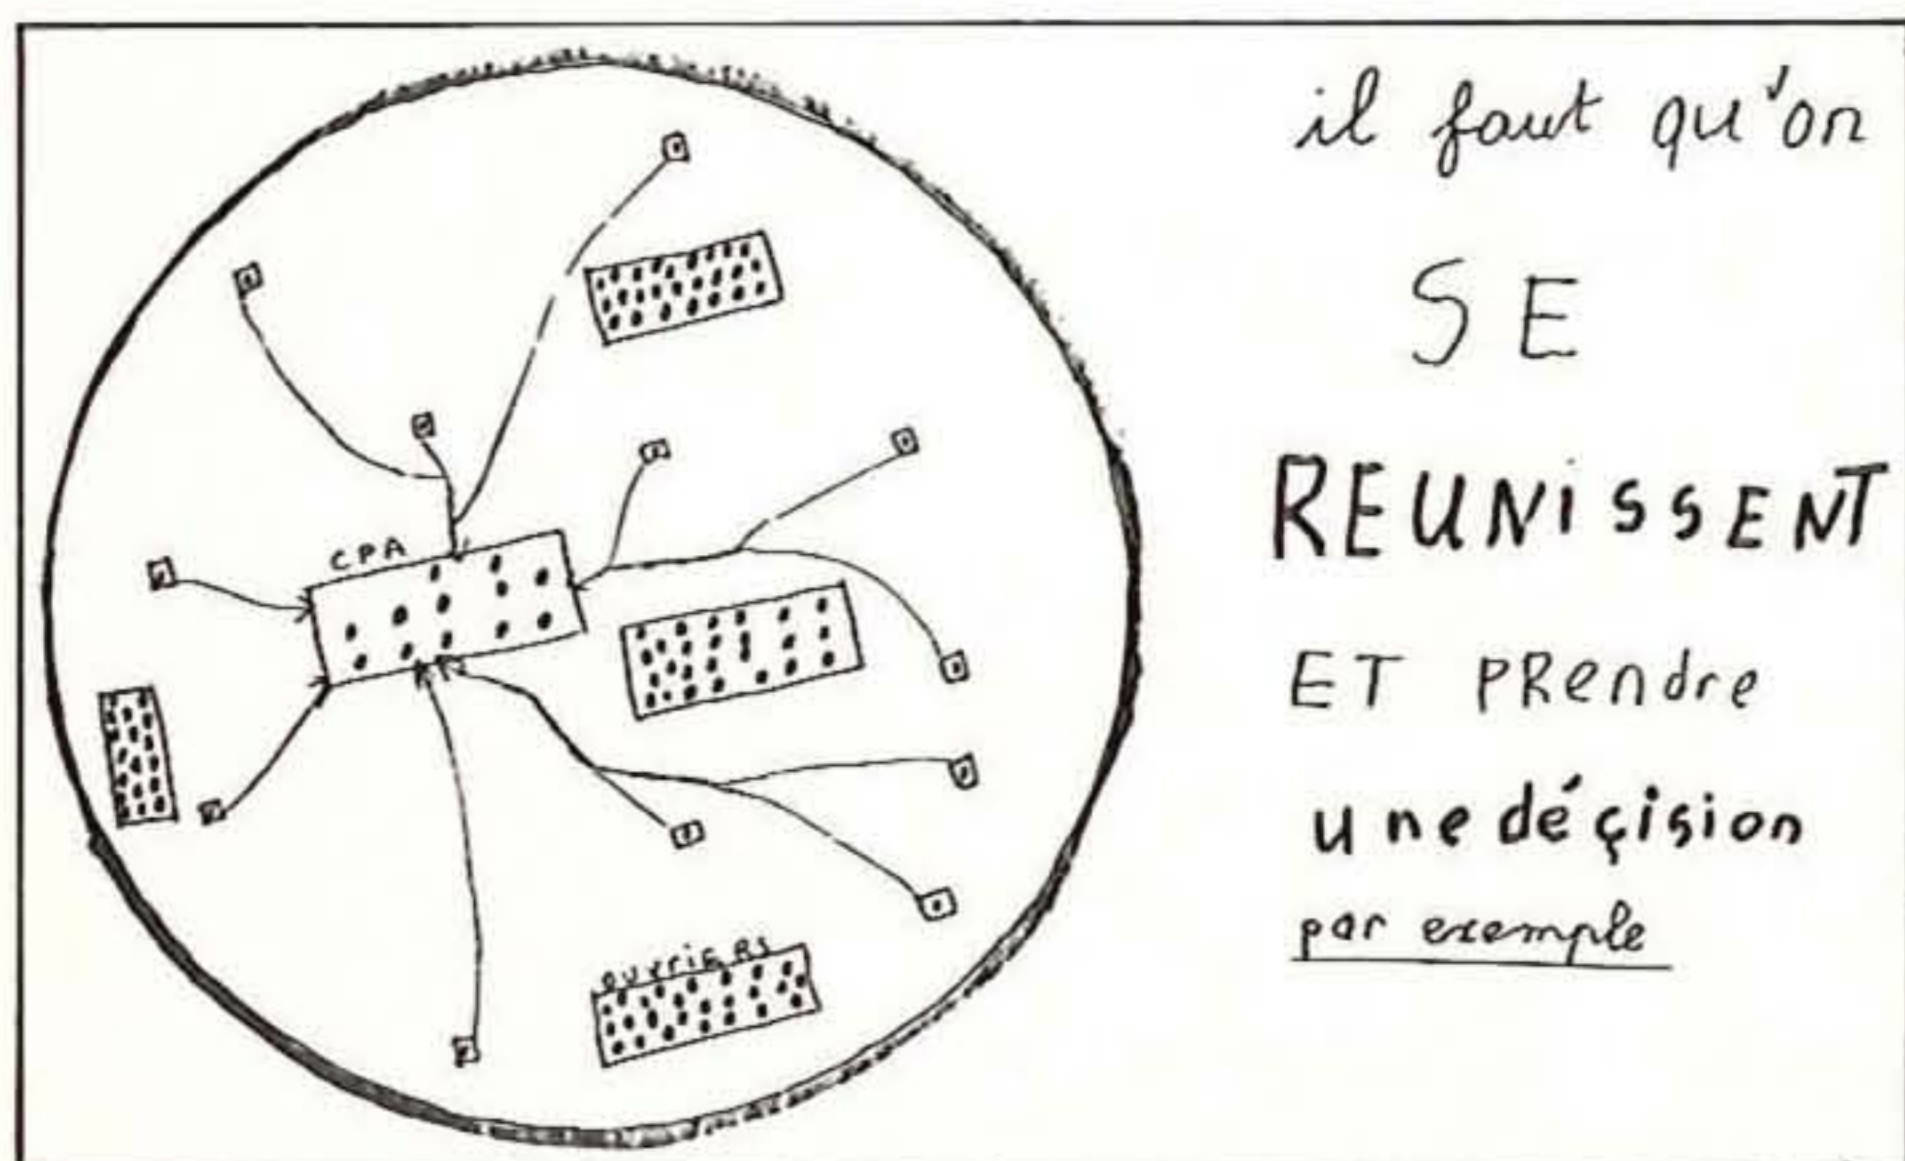 CPA
OUVRIERS
il faut qu'on
SE
REUNISSENT
ET PRendre
une déçision
par exemple